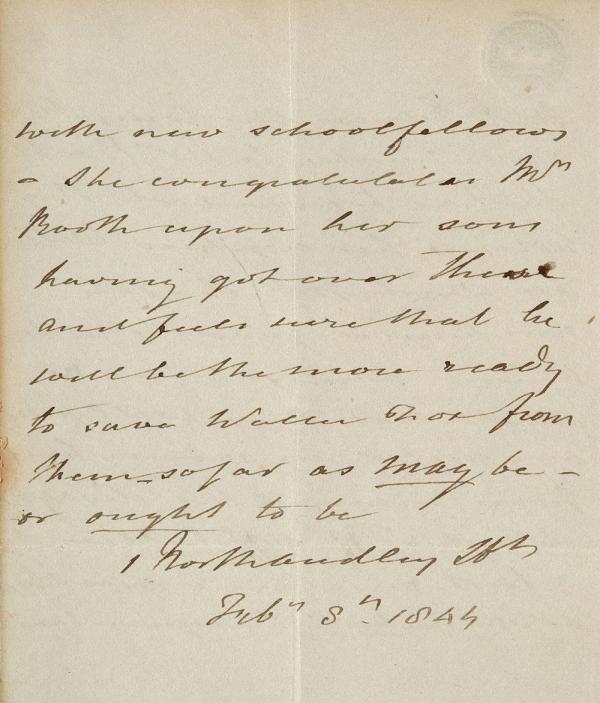 with new schoolfellows
- She congratulates Mrs
Booth upon her sons
having got over these
and feels sure that he
will be the more ready
to save Walter from
them - so far as may be -
or ought to be
1 North Audley St
Feby 8th 1844